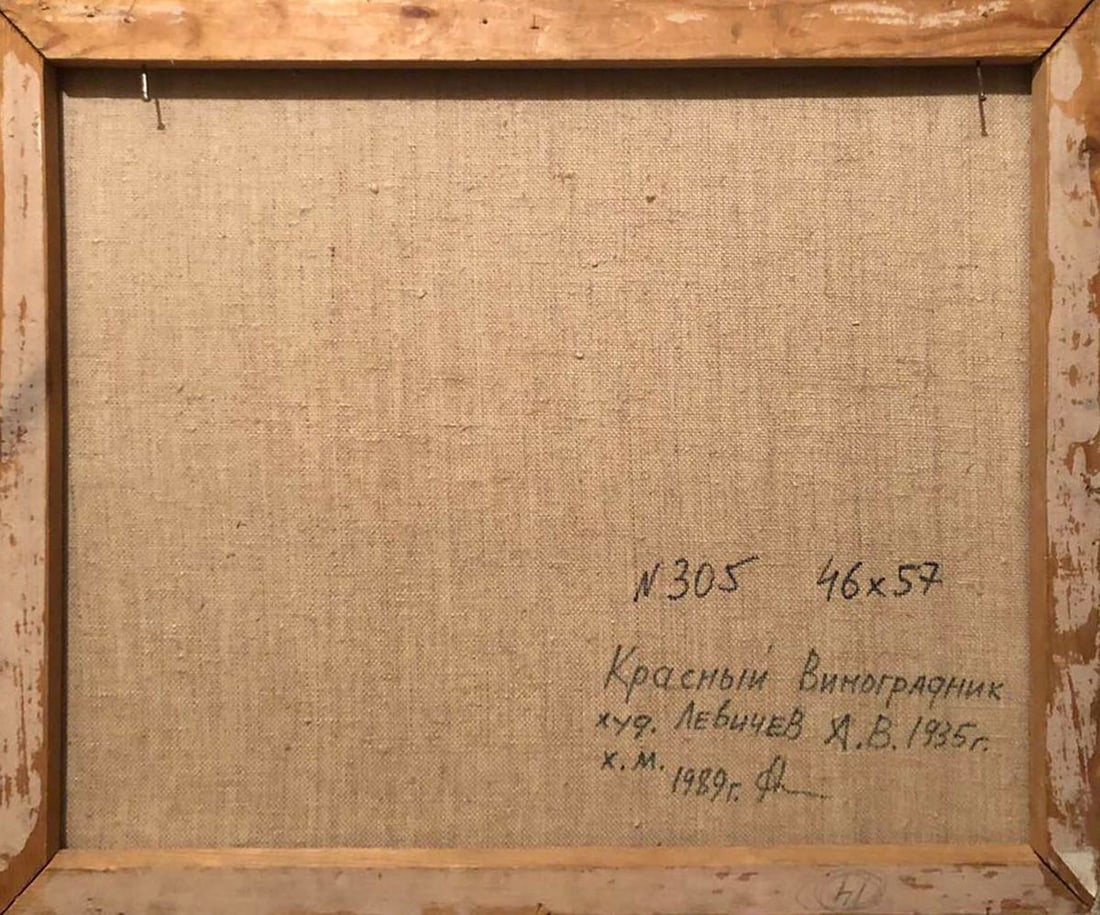 N 305 46x57
Красный Виноградник
худ. Левичев А.В. 1935г.
х.м.
1989г.
14